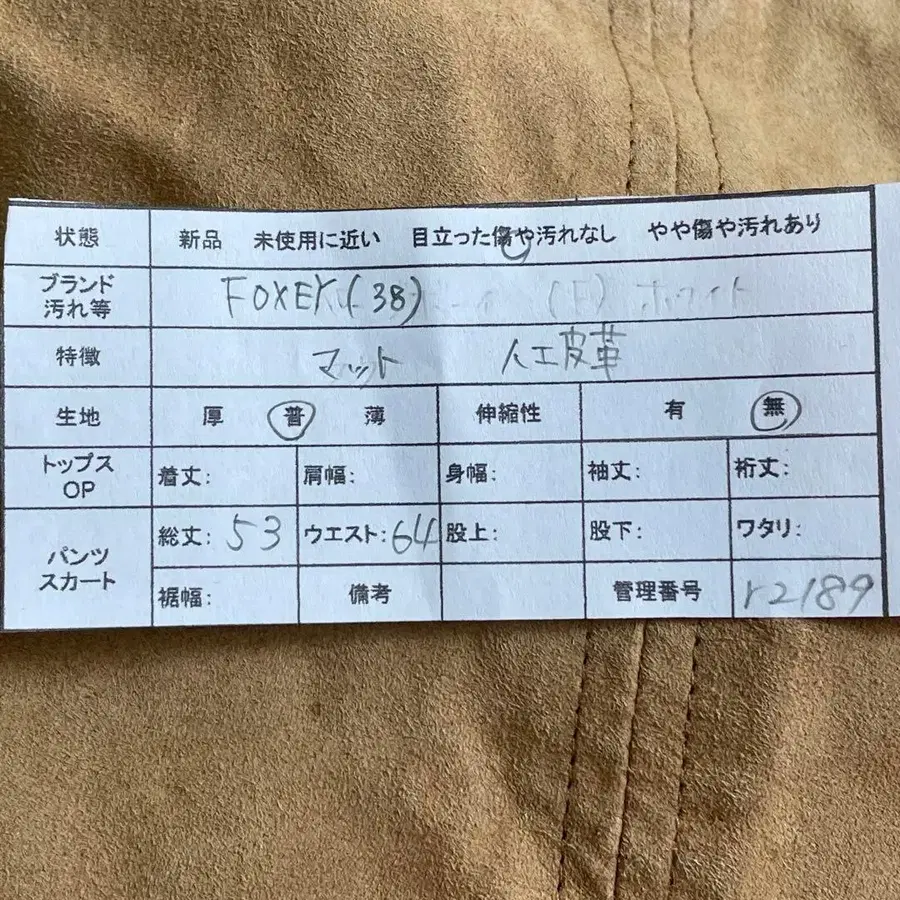 状態 新品 未使用に近い 目立った傷や汚れなし やや傷や汚れあり
ブランド FOXEY(38) (F) ホワイト
汚れ等
特徴 マット 人工皮革
生地 厚 普 薄 伸縮性 有 無
トップス 着丈: 肩幅: 身幅: 袖丈: 裄丈:
OP
総丈: 53 ウエスト: 64 股上: 股下: ワタリ:
パンツ
スカート
裾幅: 備考 管理番号 r2189